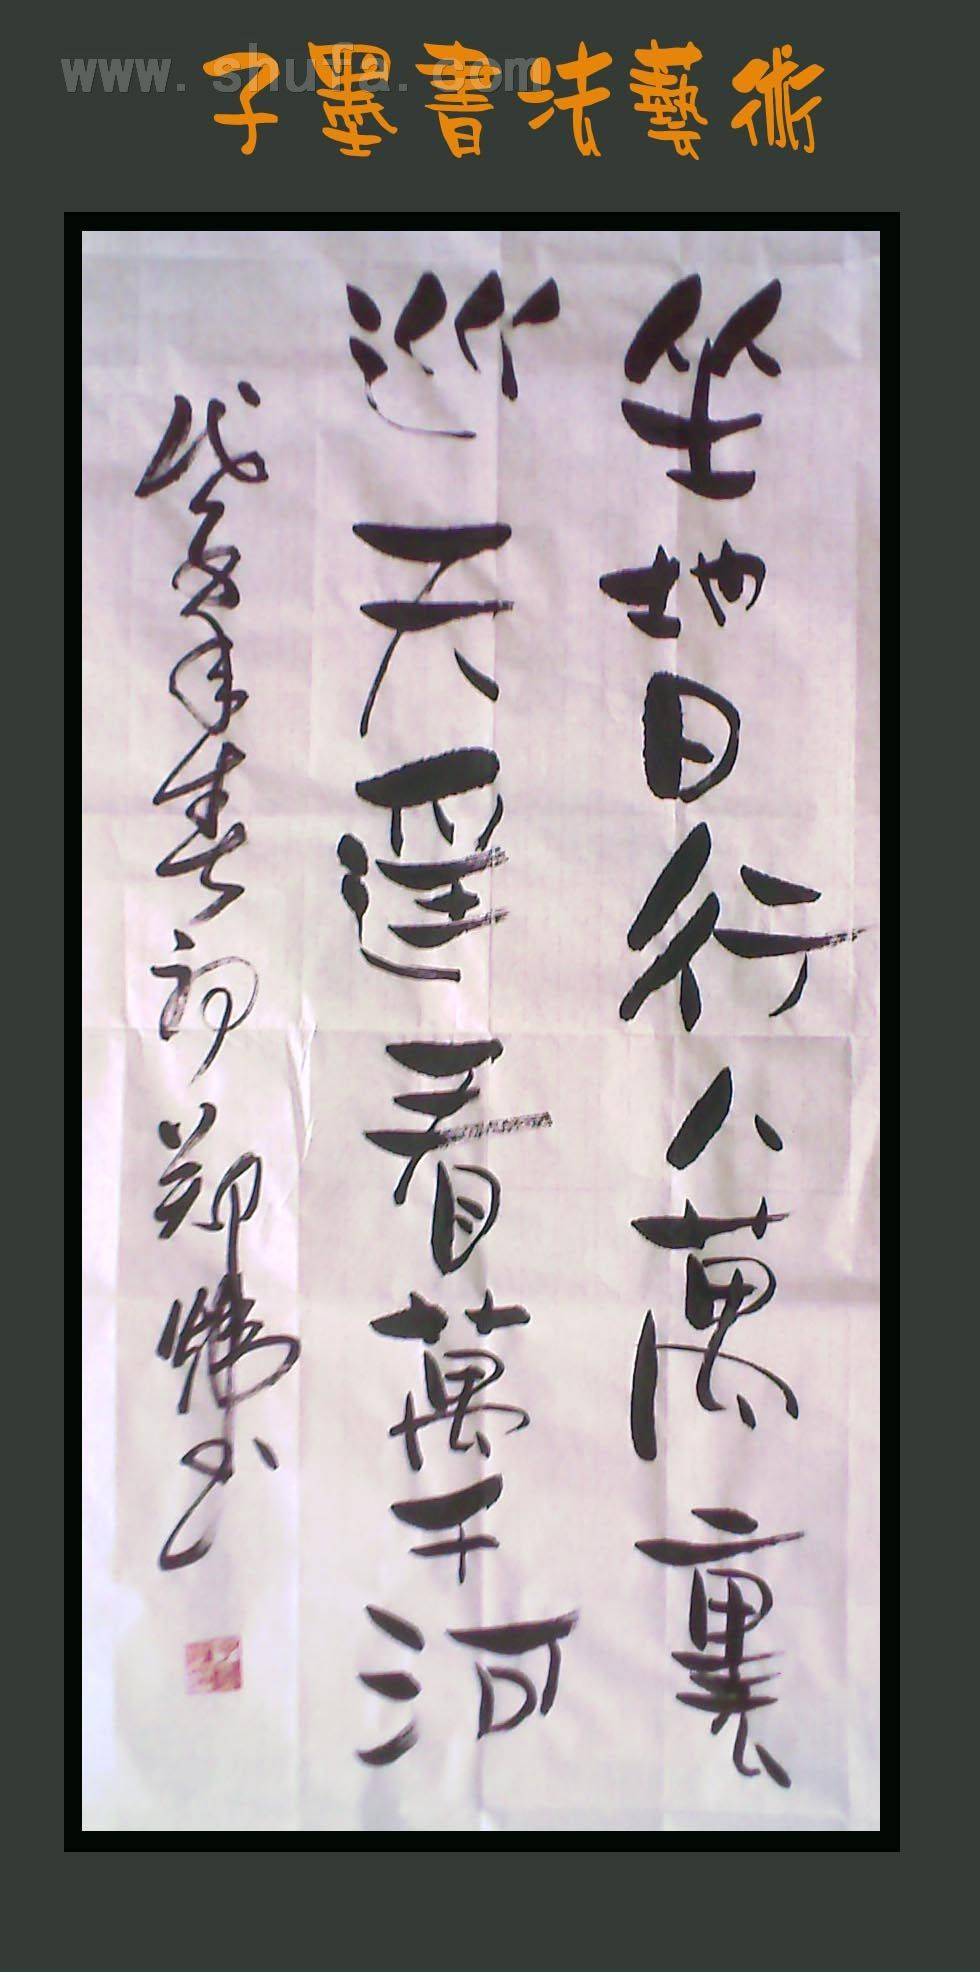 www.shufa.com
子墨書法藝術
坐地日行八萬裏
巡天遥看萬千河
年春初郑炜书